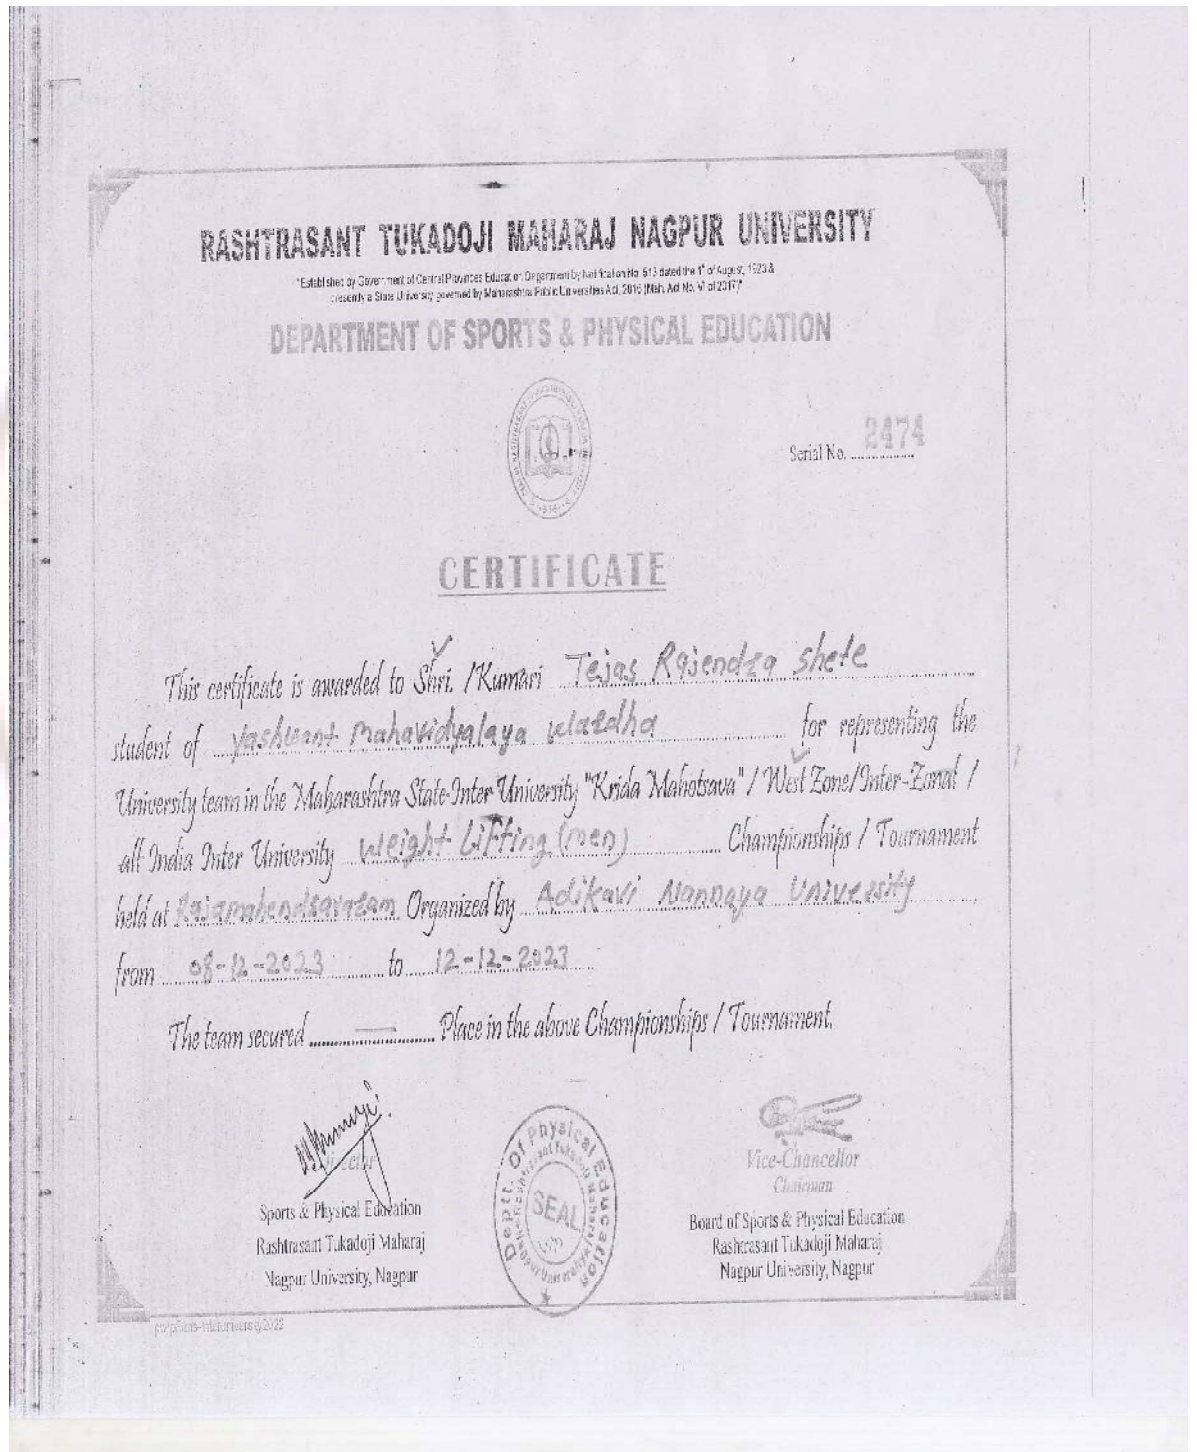 RASHTRASANT TUKADOJI MAHARAJ NAGPUR UNIVERSITY
"Established by Government of Central Provinces Education Department by Notification No. 513 dated the 1st of August, 1923 &
presently a State University governed by Maharashtra Public Universities Act, 2016 (Mah. Act No. VI of 2017)"
DEPARTMENT OF SPORTS & PHYSICAL EDUCATION
Serial No. 2474
CERTIFICATE
This certificate is awarded to Shri. /Kumari Tejas Rajendra Shete
student of Yashwant Mahavidyalaya Wardha for representing the
University team in the Maharashtra State-Inter University "Krida Mahotsava" / West Zone/Inter-Zonal /
all India Inter University Weight Lifting (men) Championships / Tournament
held at Rajamahendravaram Organized by Adikavi Nannaya University
from 08-12-2023 to 12-12-2023
The team secured — Place in the above Championships / Tournament.
Director
Sports & Physical Education
Rashtrasant Tukadoji Maharaj
Nagpur University, Nagpur
Deptt. Of Physical Education
Rashtrasant Tukadoji Maharaj Nagpur University
SEAL
Vice-Chancellor
Chairman
Board of Sports & Physical Education
Rashtrasant Tukadoji Maharaj
Nagpur University, Nagpur